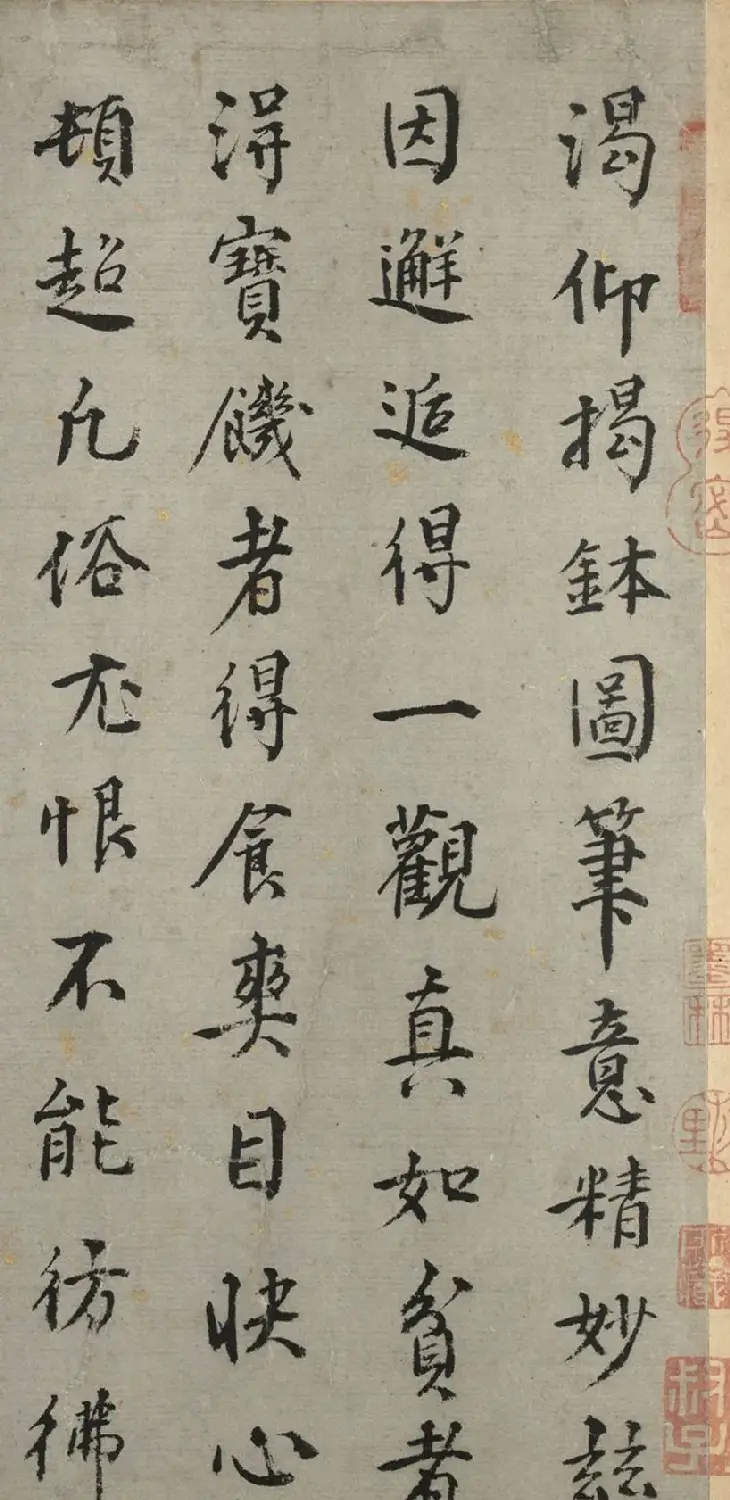 渴仰揭鉢圖筆意精妙玆
因邂逅得一觀真如貧者
得寶饑者得食爽目快心
頓超凡俗尤恨不能彷彿
墨林